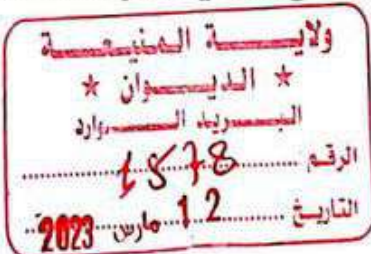 ولايـــة المنيعـــة
* الديـــوان *
البـــريد الـــوارد
الرقم ........ 1578 ........
التاريخ ........ 12 مارس 2023